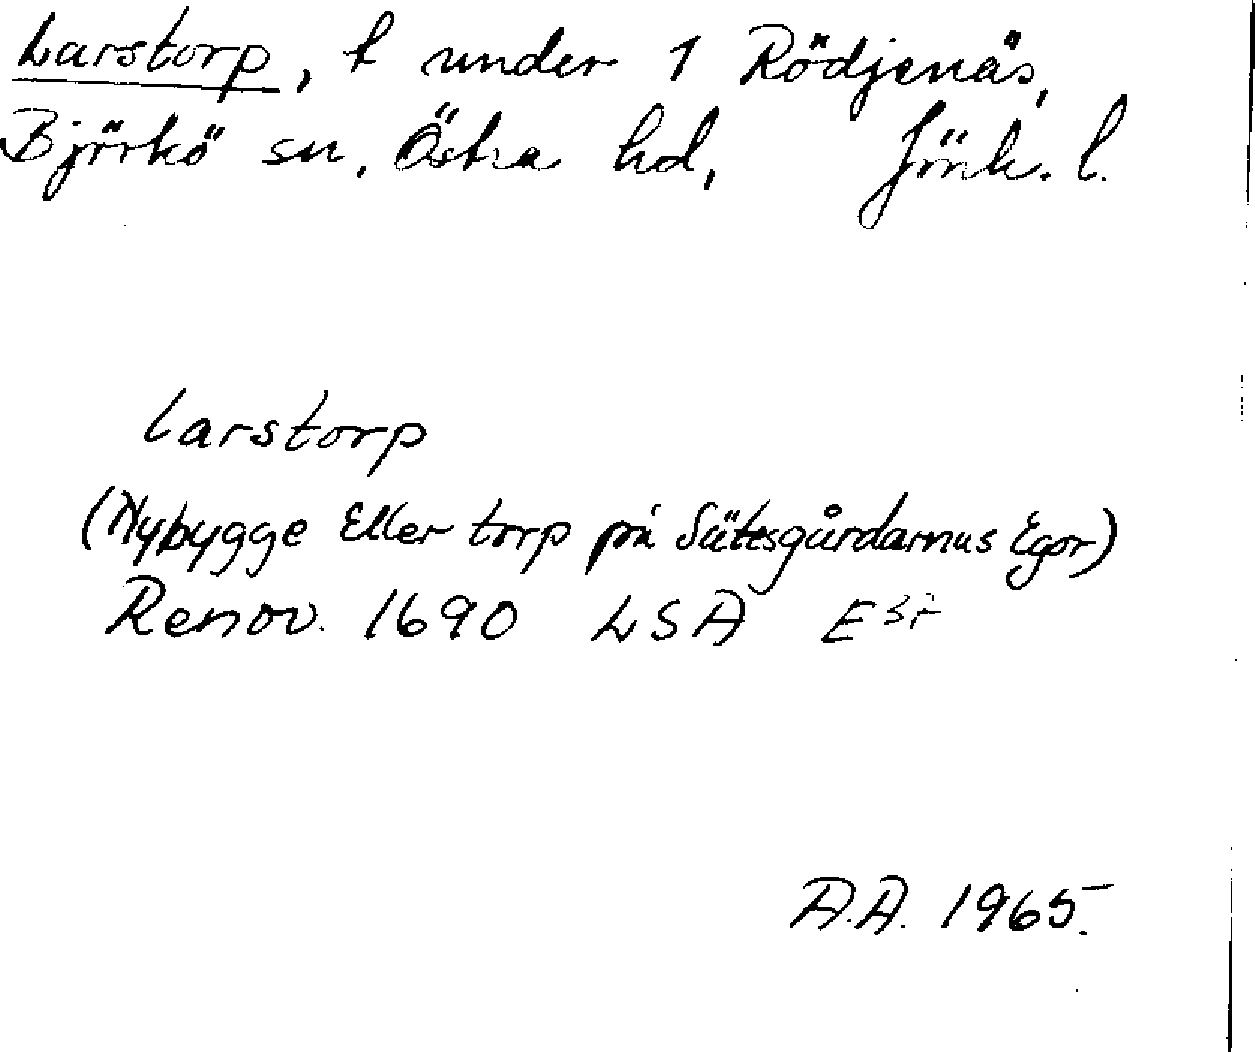 Larstorp, t under 1 Rödjenäs,
Björkö sn, Östra hd, Jönk. l.
Larstorp
(Nybygge Eller torp på Sätesgårdarnas Egor)
Renov. 1690 LSA E
A.A. 1965.